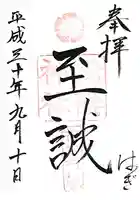 奉拝
至誠
はぎ
平成三十年九月十日